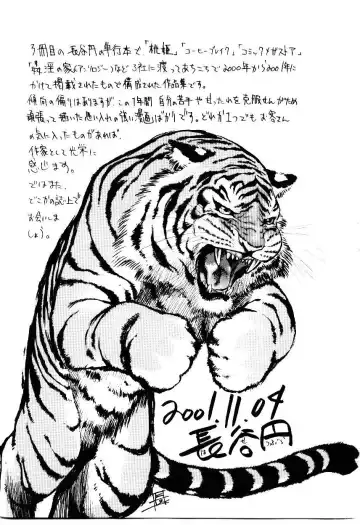 3冊目の長谷円の単行本で「桃姫」「コーヒーブレイク」「コミックメガストア」
「姦淫の家(アンソロジー)」など3社に渡ってあちこちで2000年から2001年に
かけて掲載されたもので構成された作品集です。
傾向の偏りはありますが、この1年間 自分の苦手や甘ったれを克服せんがため
頑張って描いた思い入れの強い漫画ばかりです。どれか1つでもお客さん
の気に入ったものがあれば、
作家として光栄に
感じます。
ではまた、
どこかの誌上で
お会いしま
しょう。
2001.11.04
長谷円